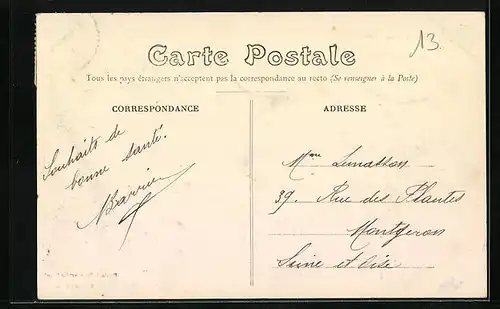 13
Carte Postale
Tous les pays étrangers n'acceptent pas la correspondance au recto (Se renseigner à la Poste)
CORRESPONDANCE
ADRESSE
Souhaits de
bonne santé.
Mme
39, Rue des Plantes
Montgeron
Seine et Oise